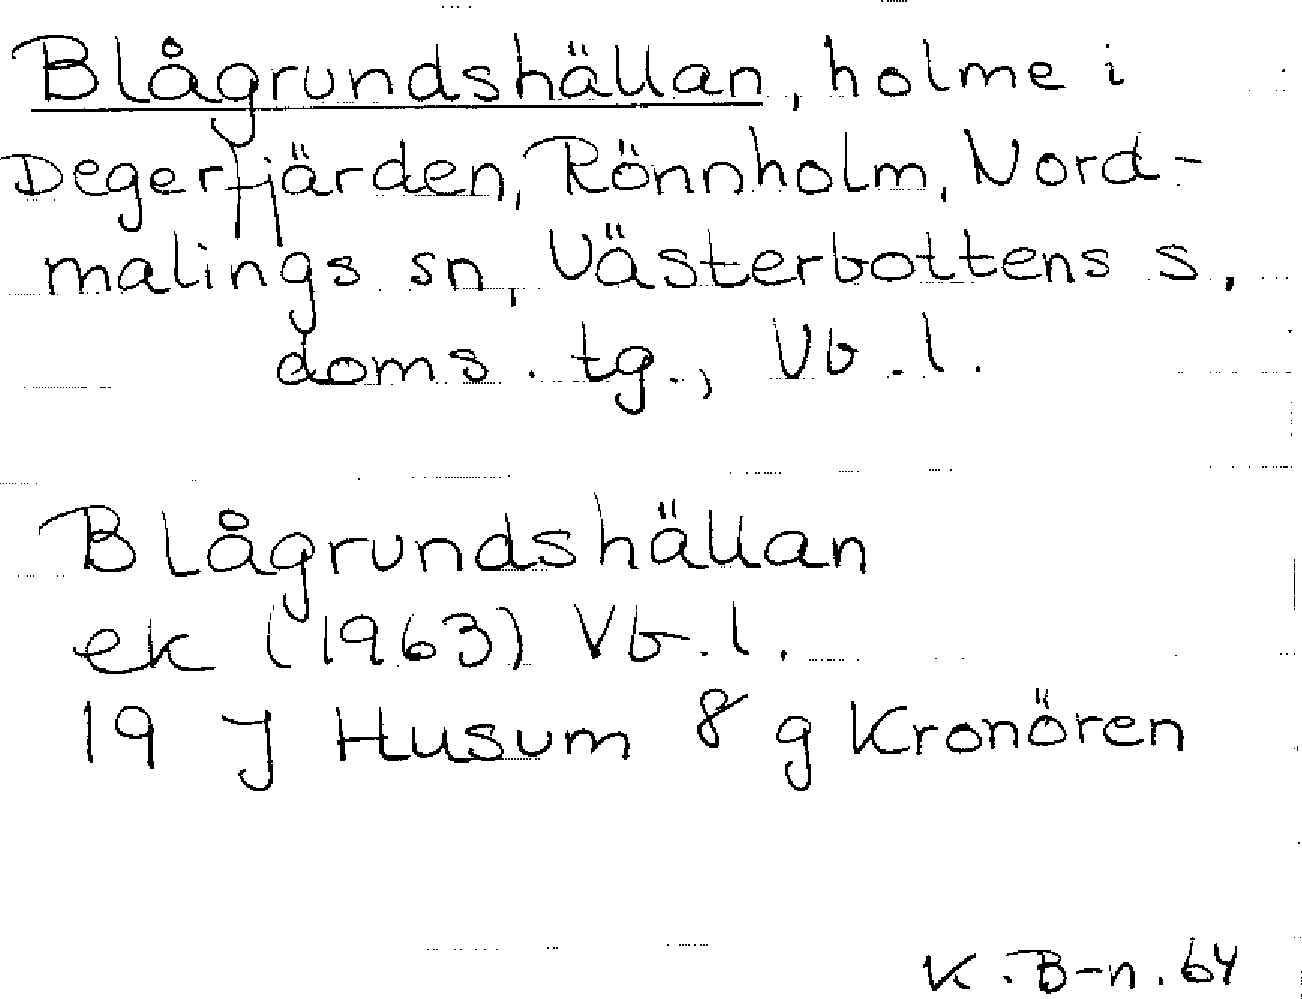 Blågrundshällan, holme i
Degerfjärden, Rönnholm, Nord-
malings sn, Västerbottens s.
doms. tg., Vb. l.
Blågrundshällan
ek (1963) Vb. l.
19 J Husum 8 g Kronören
K. B-n. 64